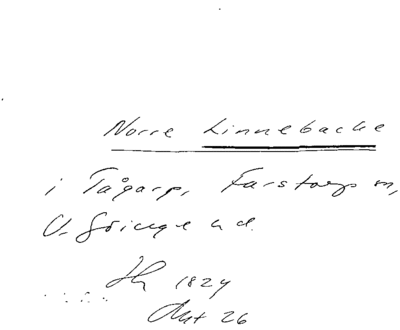 Norre Linnebacke
i Tågarp, Farstorps sn,
V. Göinge hd.
1824
Akt 26